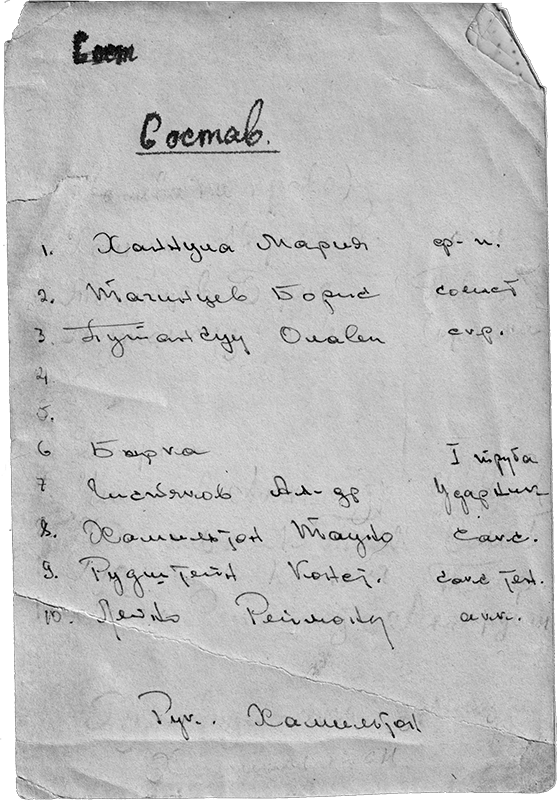 Сост
Состав.
1. Ханнула Мария ф-п.
2. Тагинцев Борис солист
3 Олави скр.
4
5.
6 Бырка I труба
7 Чистяков Ал-др Ударник
8. Хамильтон Тауно сакс.
9. Рудштейн Конст. сакс тен.
10. Лейно Реймонд акк.
Рук. Хамильтон